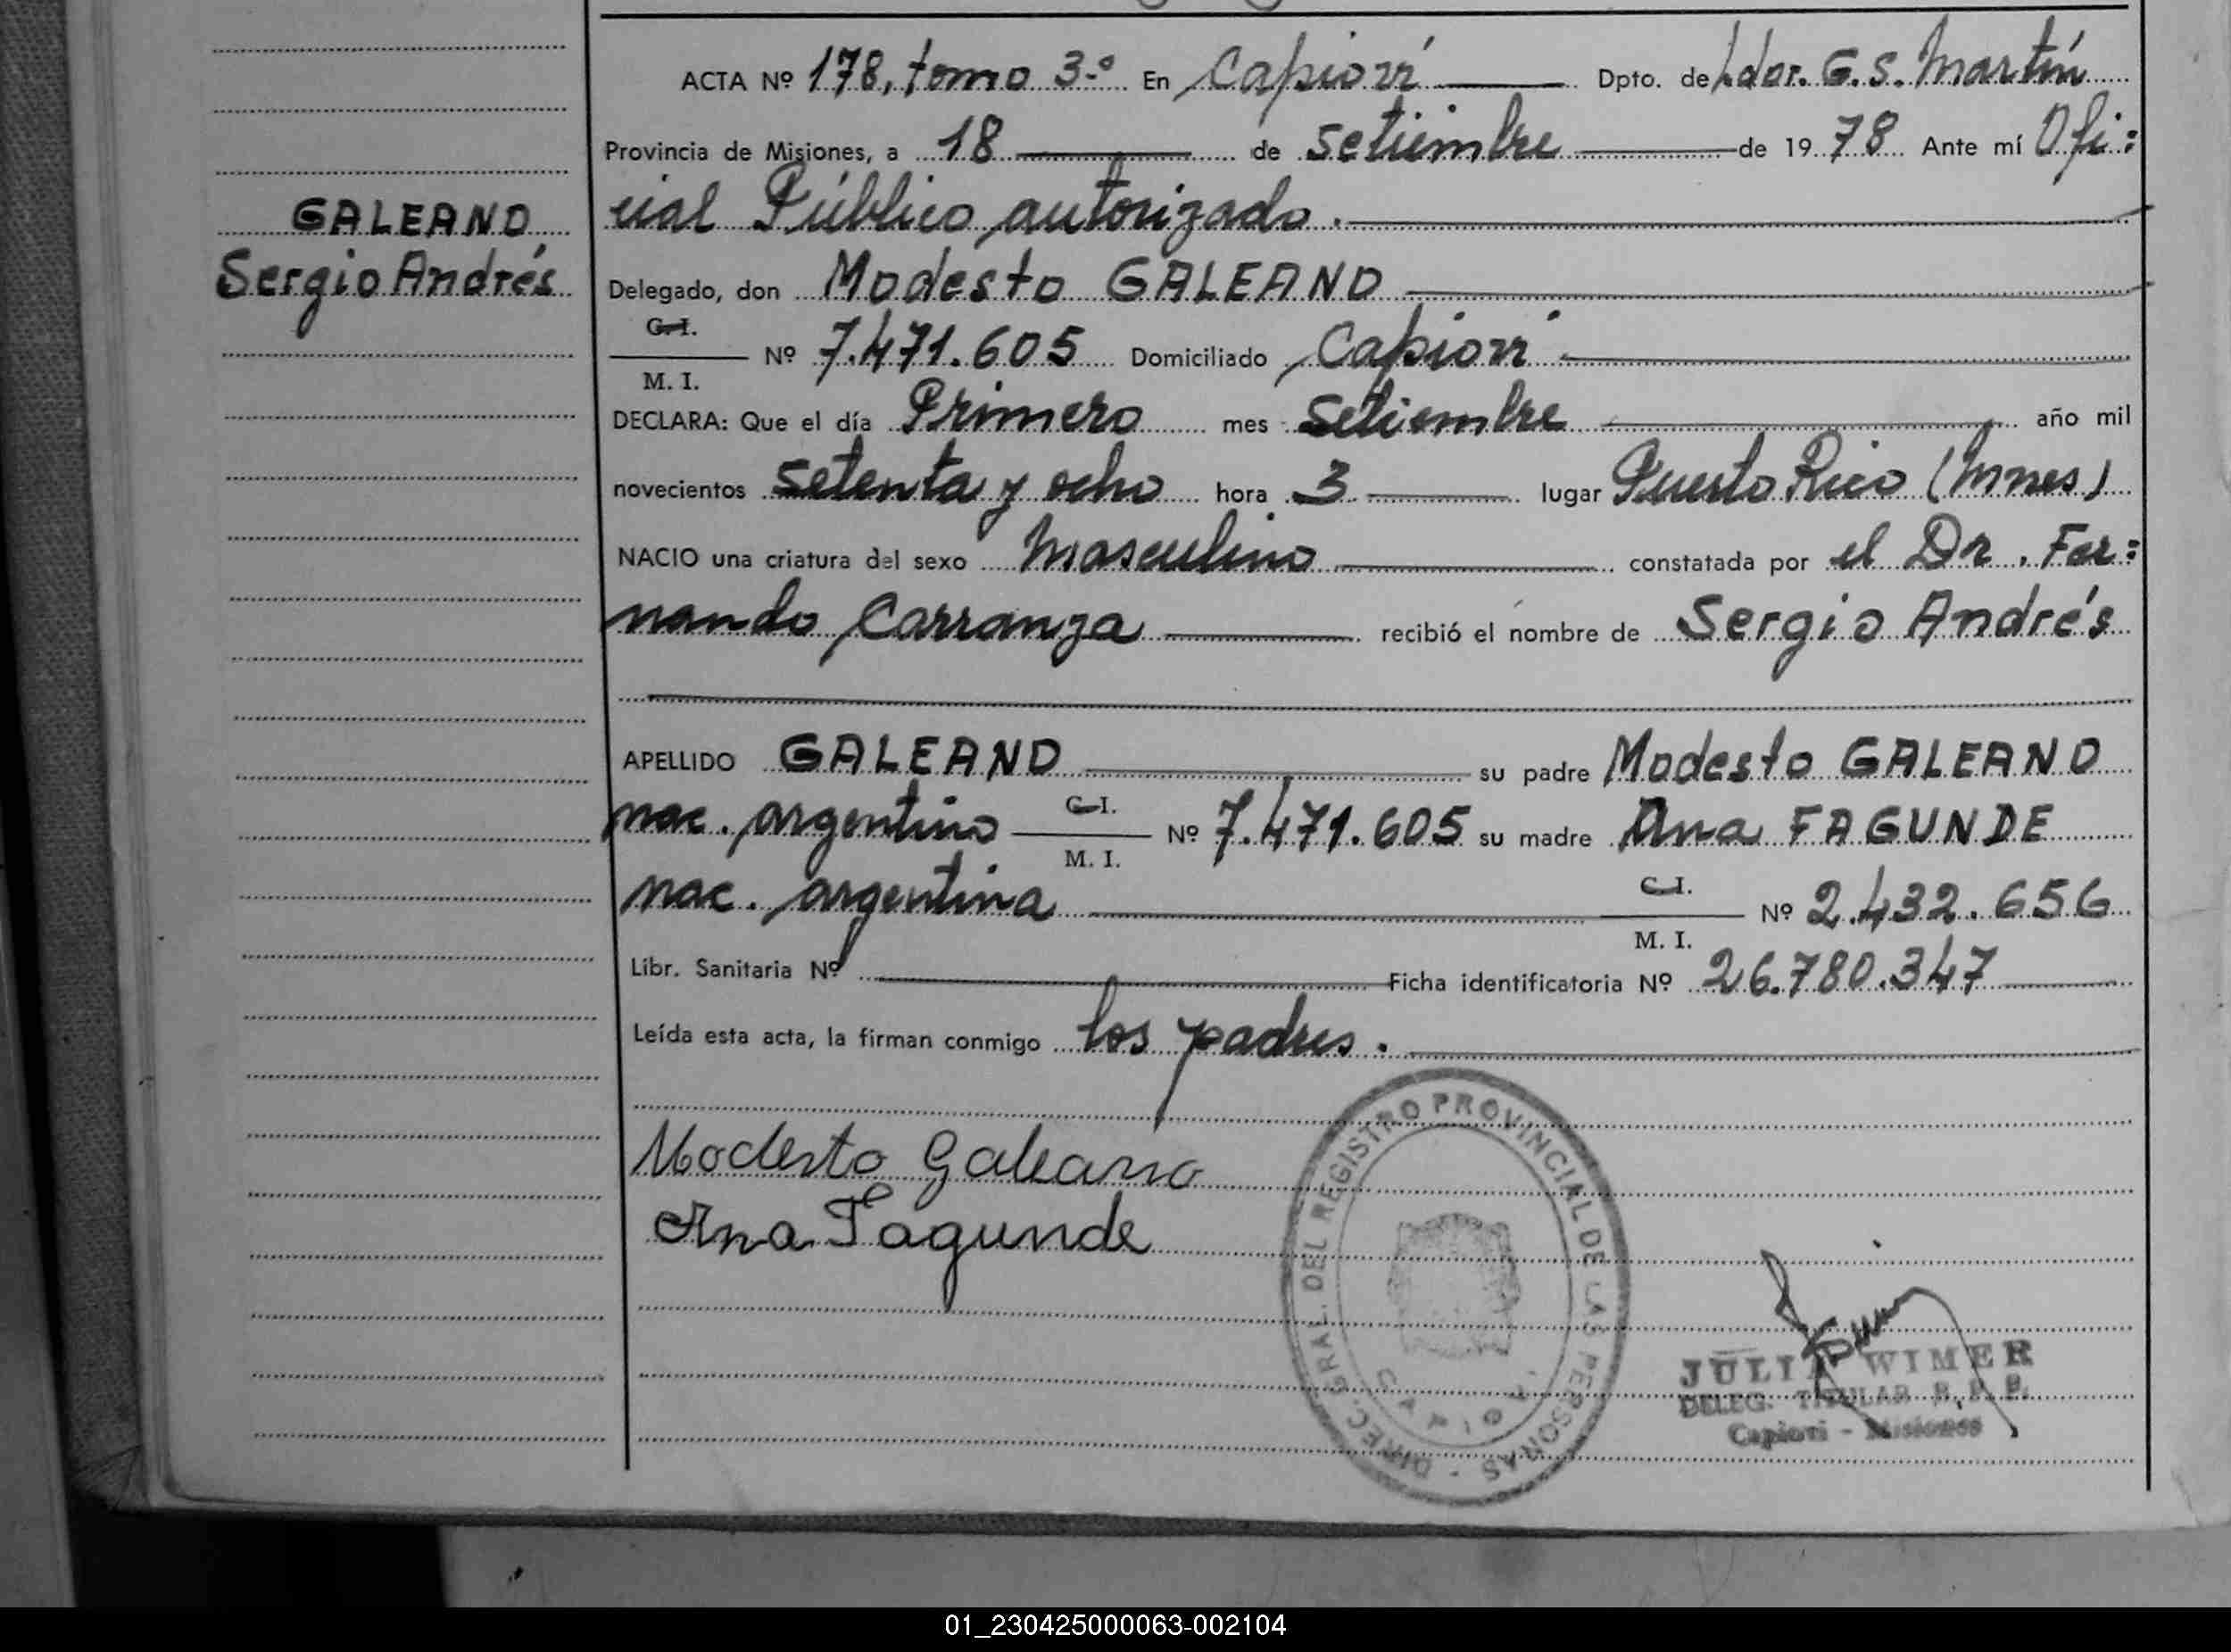 ACTA Nº 178, tomo 3º En Capioví Dpto. de Ldor. G. S. Martín
Provincia de Misiones, a 18 de setiembre de 1978 Ante mí Ofi=
cial Público autorizado.
GALEANO,
Sergio Andrés
Delegado, don Modesto GALEANO
C. I.
M. I. Nº 7.471.605 Domiciliado Capioví
DECLARA: Que el día Primero mes setiembre año mil
novecientos setenta y ocho hora 3 lugar Puerto Rico (Mnes)
NACIO una criatura del sexo Masculino constatada por el Dr. Fer=
nando Carranza recibió el nombre de Sergio Andrés
APELLIDO GALEANO su padre Modesto GALEANO
nac. argentino C. I. M. I. Nº 7.471.605 su madre Ana FAGUNDE
nac. argentina C. I. M. I. Nº 2.432.656
Libr. Sanitaria Nº Ficha identificatoria Nº 26.780.347
Leída esta acta, la firman conmigo los padres.
Modesto Galeano
Ana Fagunde
DIREC. GRAL. DEL REGISTRO PROVINCIAL DE LAS PERSONAS -
CAPIOVI
JULIA WIMER
DELEG. TITULAR R. P. P.
Capiovi - Misiones
01_230425000063-002104